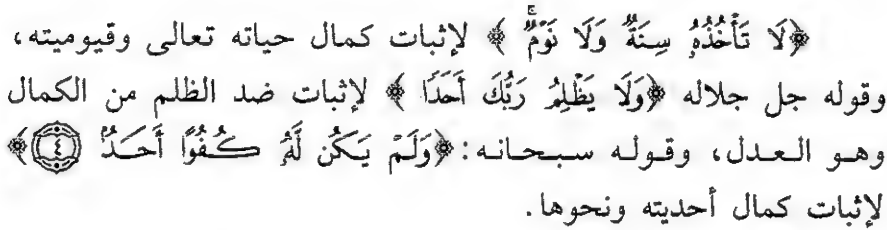 ﴿لَا تَأْخُذُهُۥ سِنَةٌ وَلَا نَوْمٌۚ﴾ لإثبات كمال حياته تعالى وقيوميته،
وقوله جل جلاله ﴿وَلَا يَظْلِمُ رَبُّكَ أَحَدًا﴾ لإثبات ضد الظلم من الكمال
وهو العدل، وقوله سبحانه: ﴿وَلَمْ يَكُن لَّهُۥ كُفُوًا أَحَدٌ ٤﴾
لإثبات كمال أحديته ونحوها.